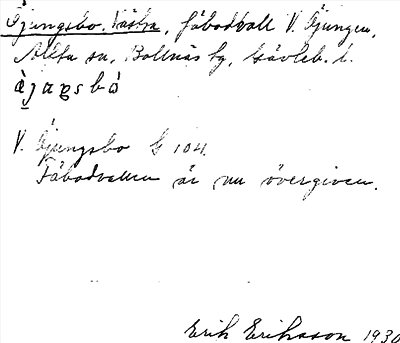 Öjungsbo, Västra, fäbodvall V. Öjungen,
Alfta sn, Bollnäs tg, Gävleb. l.
V. Öjungsbo G 104.
Fäbodvallen är nu övergiven.
Erik Eriksson 1930